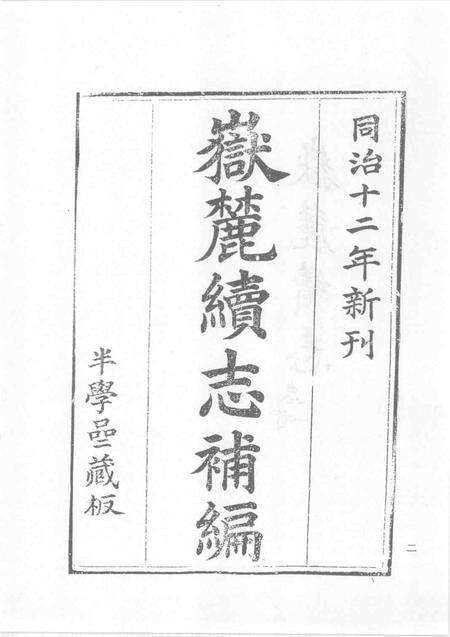 同治十二年新刊
嶽麓續志補編
半學齋藏板
二